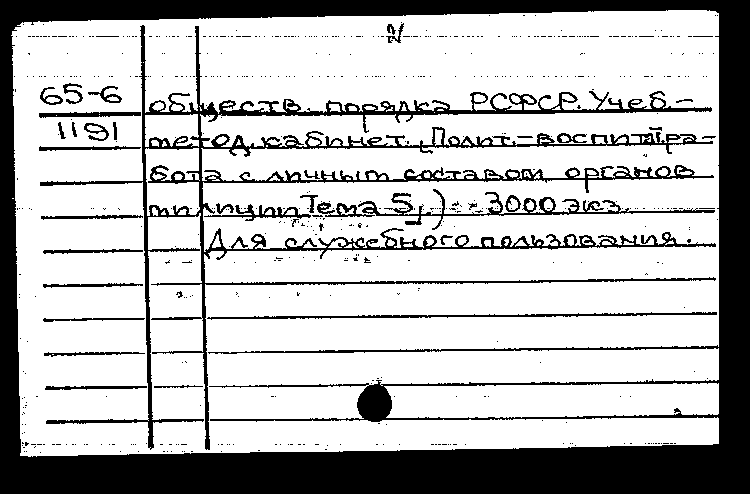 2/
65-6 обществ. порядка РСФСР. Учеб.-
1191 метод. кабинет. (Полит.-воспитат. ра-
бота с личным составом органов
милиции Тема 5,) -- 3000 экз.
Для служебного пользования.